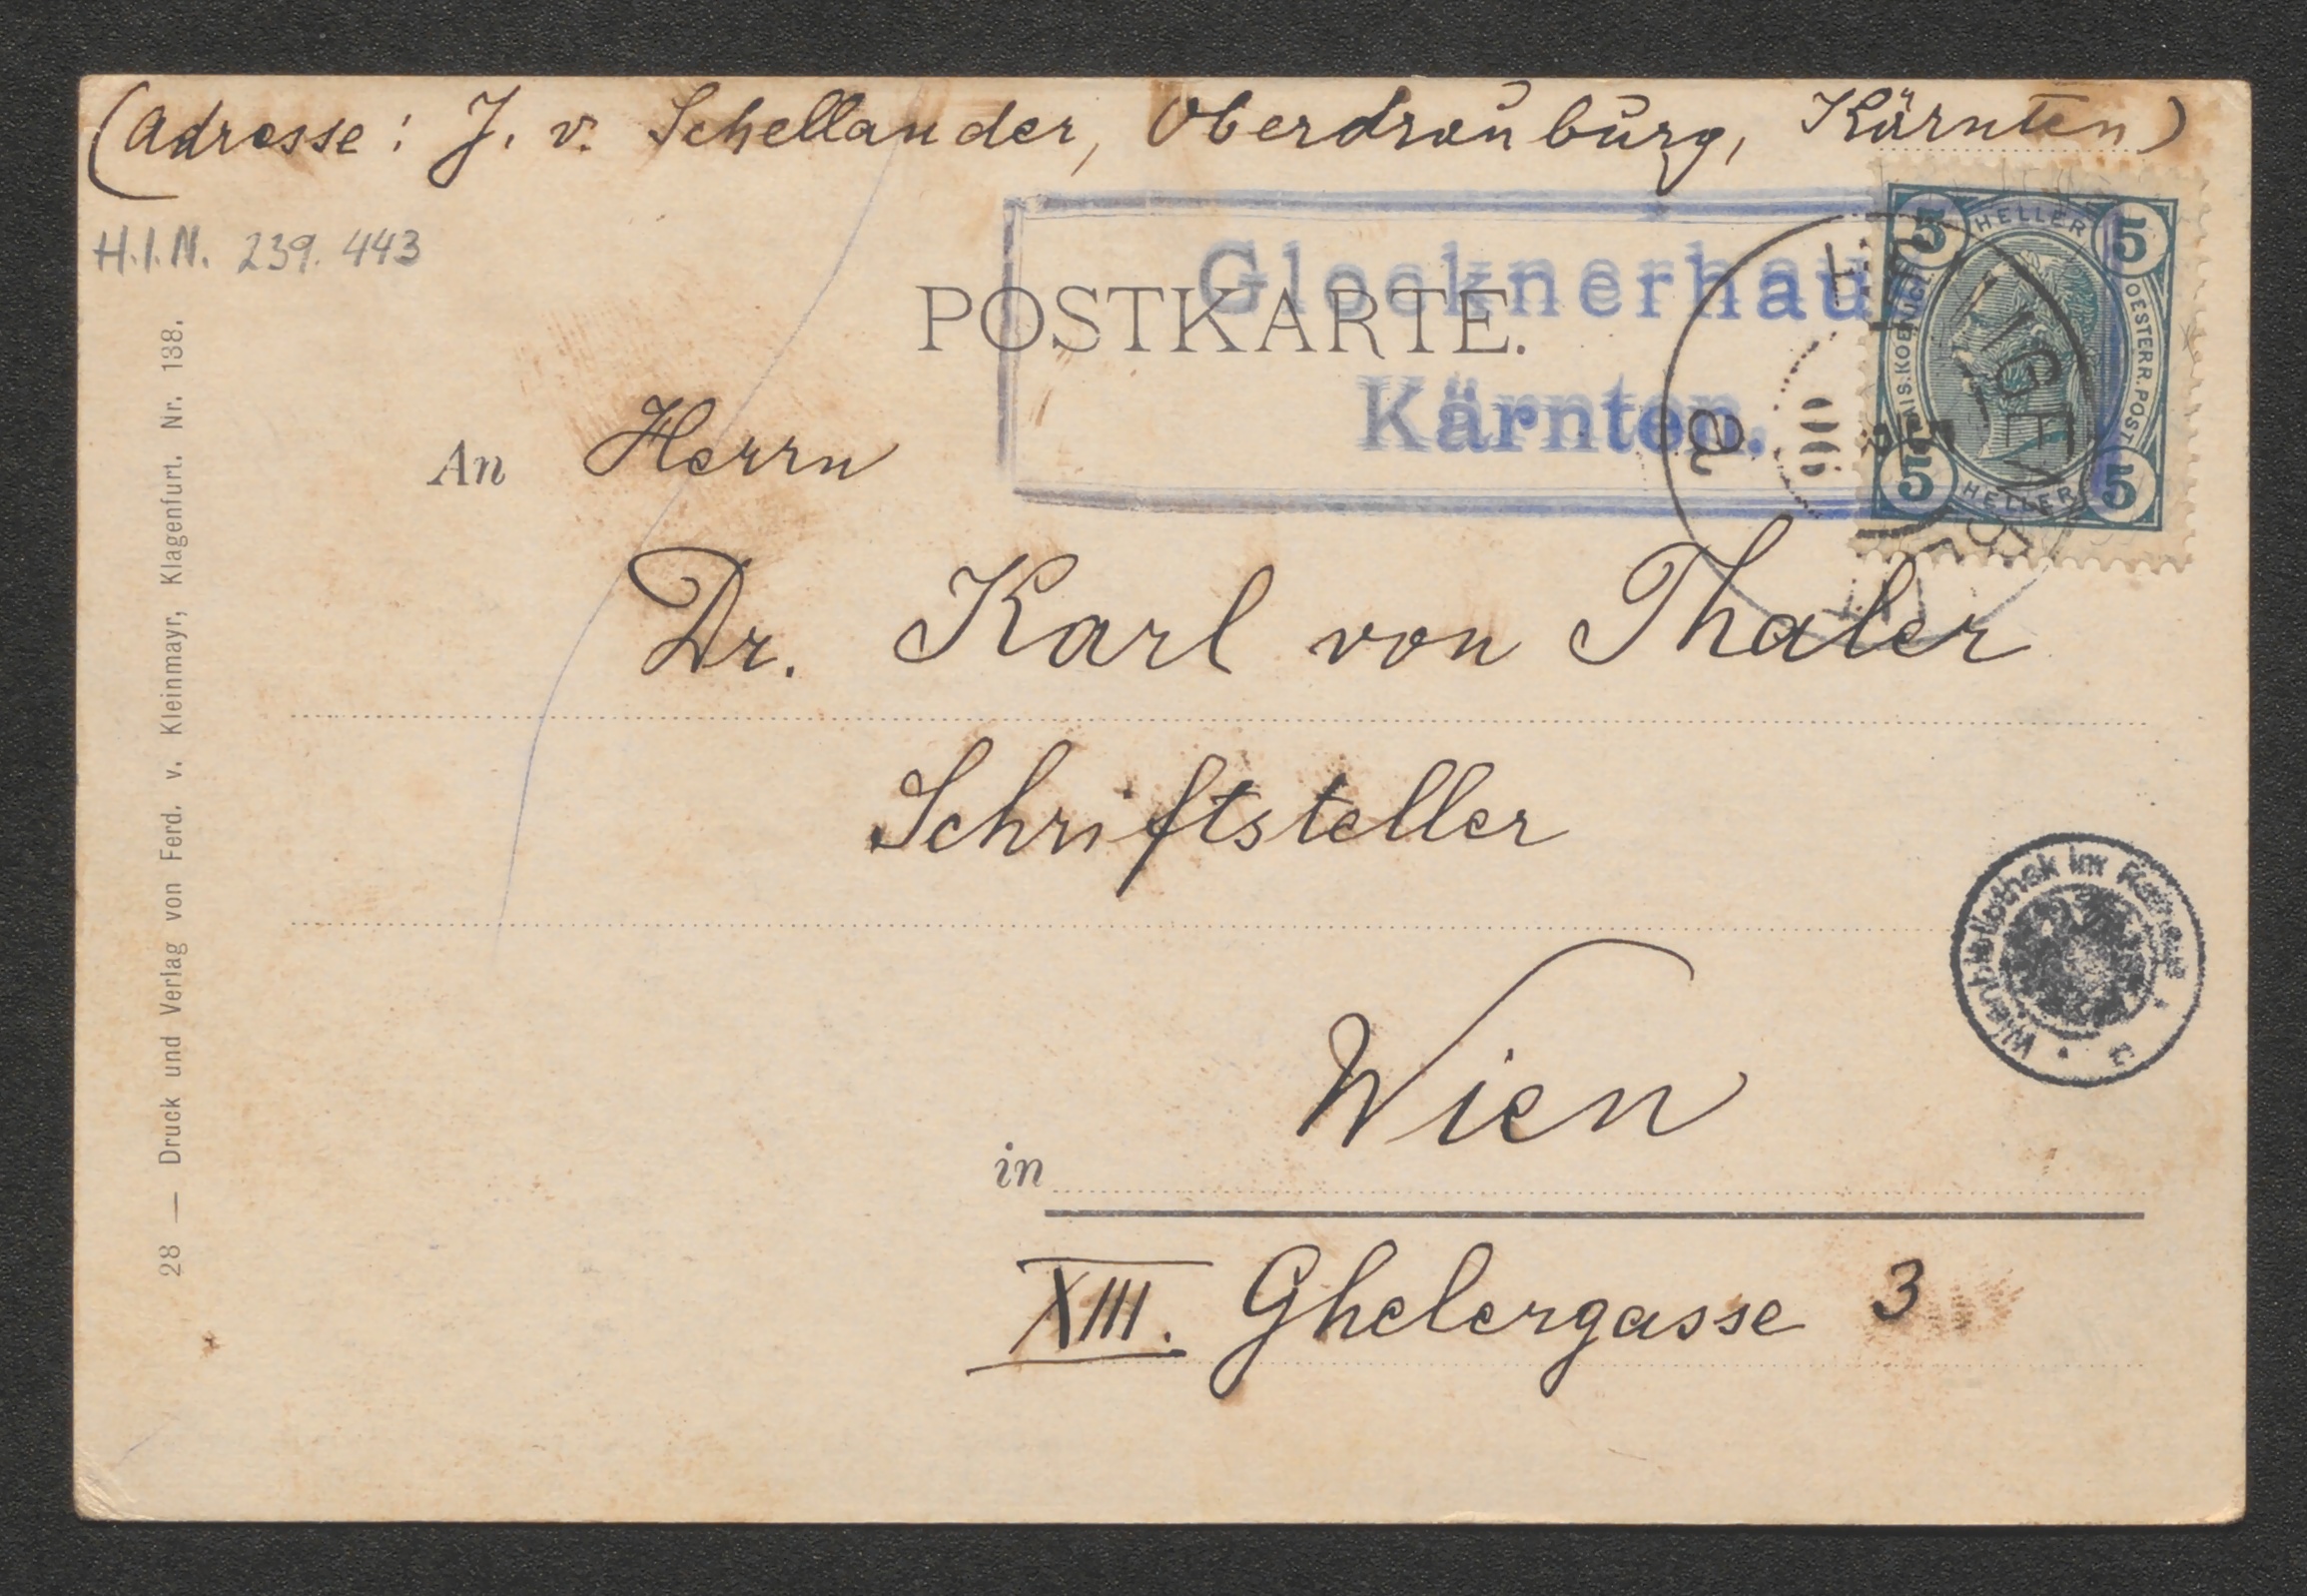 (Adresse: J. v. Schellander, Oberdrauburg, Kärnten)
H.I.N. 239.443
Glocknerhau
Kärnten.
POSTKARTE.
5 HELLER 5
OESTERR. POST
5 HELLER 5
a
An Herrn
Dr. Karl von Thaler
Schriftsteller
Wienbibliothek im Rathaus
in Wien
XIII. Ghelergasse 3
28 — Druck und Verlag von Ferd. v. Kleinmayr, Klagenfurt. Nr. 138.